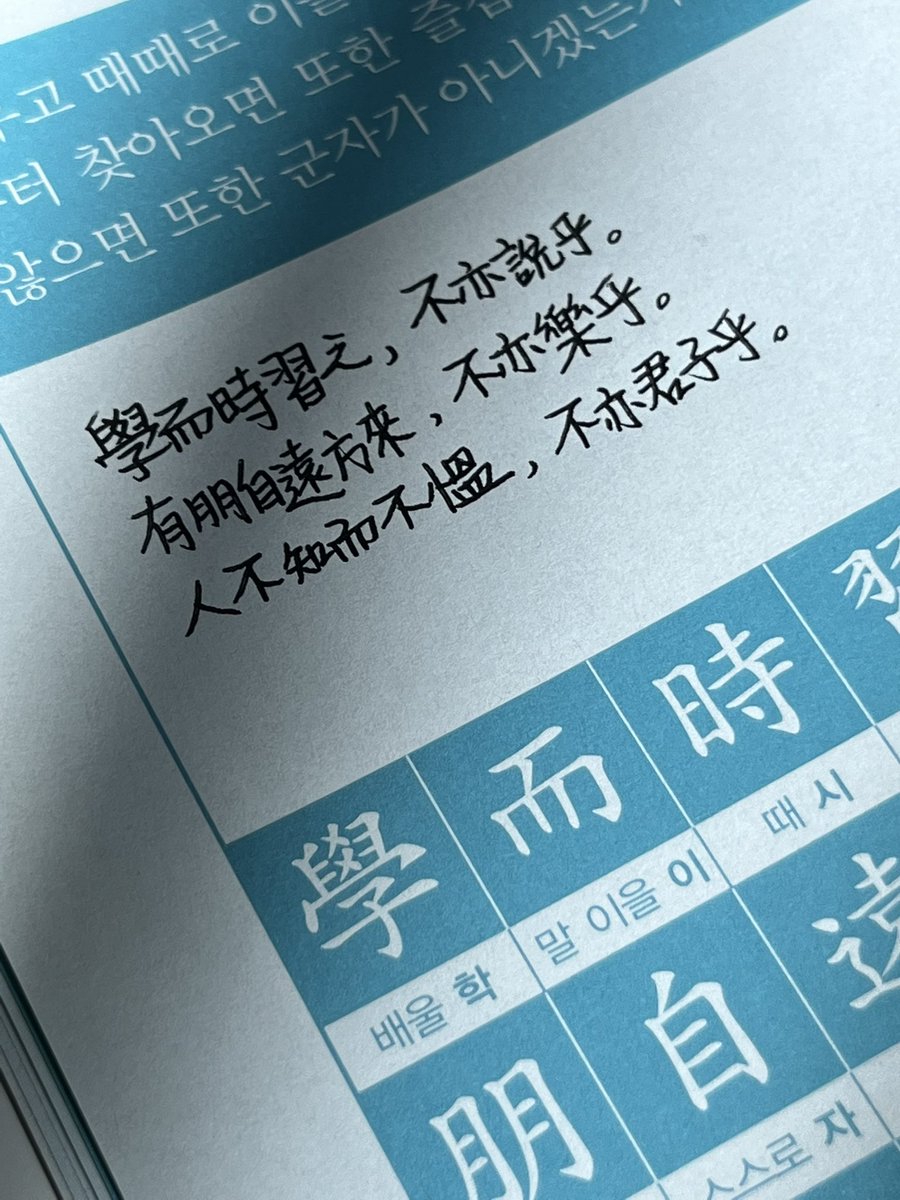 고 때때로 이
터 찾아오면 또한 즐겁
않으면 또한 군자가 아니겠는가
學而時習之,不亦説乎。
有朋自遠方來,不亦樂乎。
人不知而不慍,不亦君子乎。
學 而 時 習
배울 학 말 이을 이 때 시
朋 自 遠
스스로 자